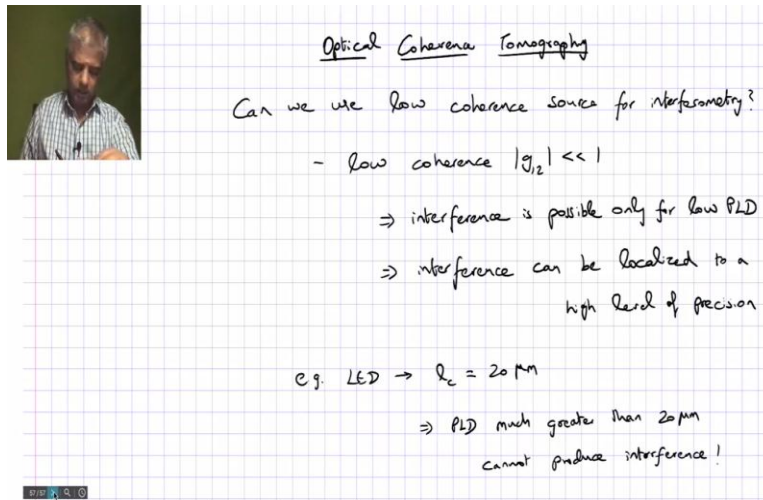 Optical Coherence Tomography
Can we use low coherence source for interferometry?
- low coherence |g₁₂| << 1
⇒ interference is possible only for low PLD
⇒ interference can be localized to a
high level of precision
e.g. LED → l_c = 20 μm
⇒ PLD much greater than 20 μm
cannot produce interference!
57/57